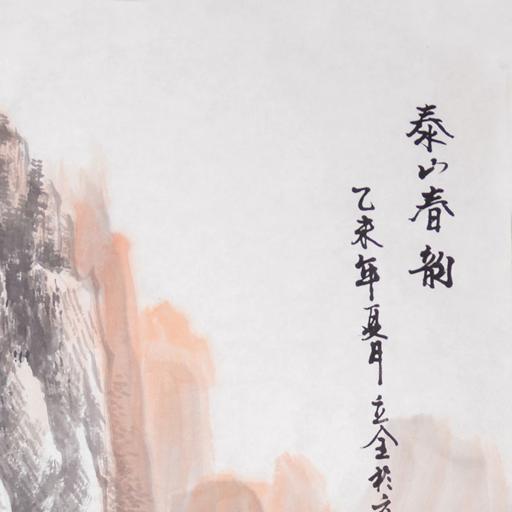 泰山春韵
乙未年夏月立全於